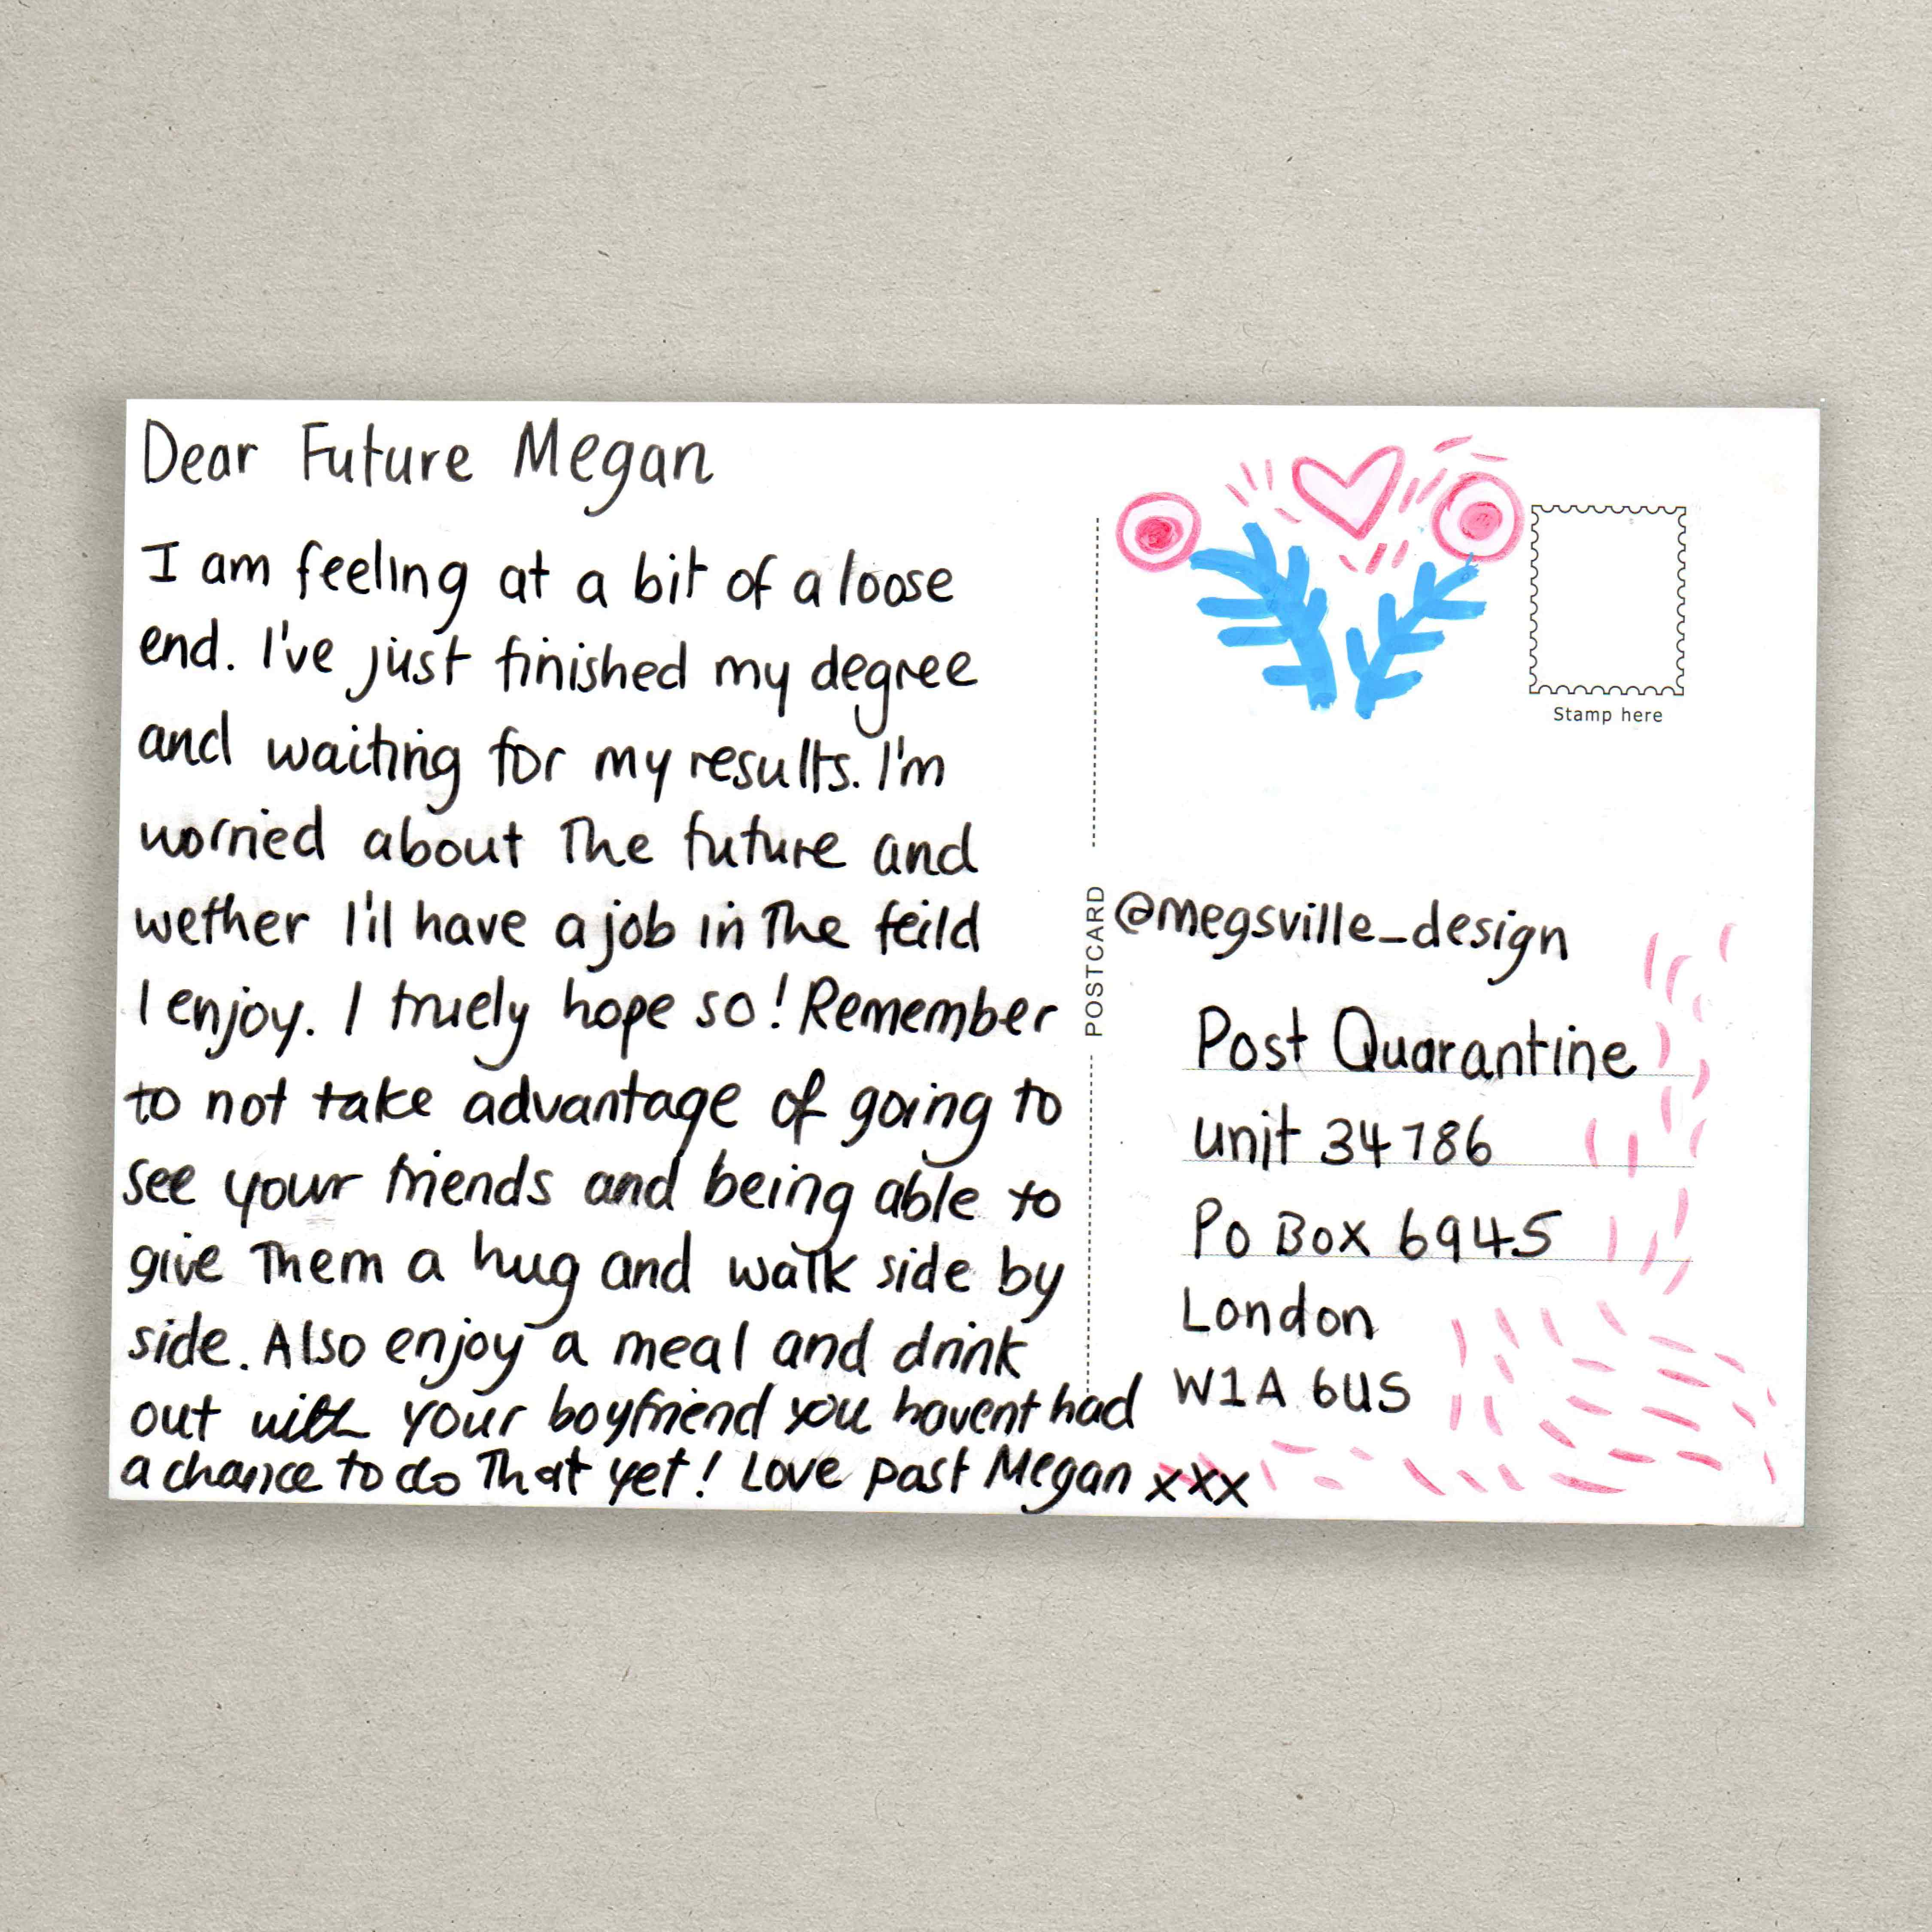 Dear Future Megan
I am feeling at a bit of a loose
end. I've just finished my degree
and waiting for my results. I'm
worried about the future and
wether I'll have a job in the feild
I enjoy. I truely hope so! Remember
to not take advantage of going to
see your friends and being able to
give them a hug and walk side by
side. Also enjoy a meal and drink
out with your boyfriend you havent had
a chance to do that yet! Love past Megan xxx
Stamp here
POSTCARD
@megsville_design
Post Quarantine
unit 34786
Po Box 6945
London
W1A 6US